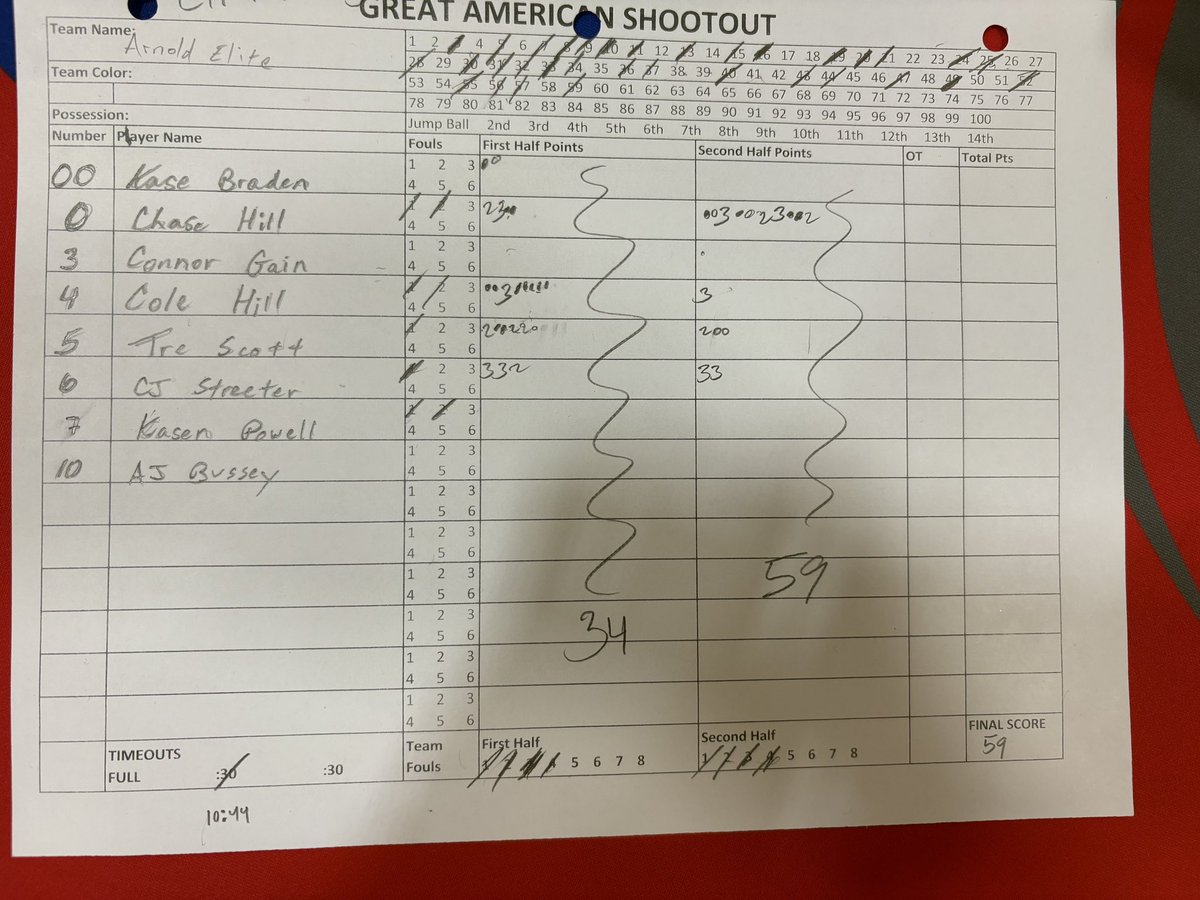 GREAT AMERICAN SHOOTOUT
Team Name:
Arnold Elite
1 2 3 4 5 6 7 8 9 10 11 12 13 14 15 16 17 18 19 20 21 22 23 24 25 26 27
Team Color:
28 29 30 31 32 33 34 35 36 37 38 39 40 41 42 43 44 45 46 47 48 49 50 51 52
53 54 55 56 57 58 59 60 61 62 63 64 65 66 67 68 69 70 71 72 73 74 75 76 77
78 79 80 81 82 83 84 85 86 87 88 89 90 91 92 93 94 95 96 97 98 99 100
Possession:
Jump Ball 2nd 3rd 4th 5th 6th 7th 8th 9th 10th 11th 12th 13th 14th
Number Player Name Fouls First Half Points Second Half Points OT Total Pts
1 2 3
00 Kase Braden
4 5 6
1 2 3
0 Chase Hill
4 5 6
1 2 3
3 Connor Gain
4 5 6
1 2 3 3
4 Cole Hill
4 5 6
1 2 3 200
5 Tre Scott
4 5 6
1 2 3 332 33
6 CJ Streeter
4 5 6
1 2 3
7 Kasen Powell
4 5 6
1 2 3
10 AJ Bussey
4 5 6
1 2 3
4 5 6
1 2 3
4 5 6
1 2 3
59
4 5 6
1 2 3
34
4 5 6
1 2 3
4 5 6
1 2 3
4 5 6
FINAL SCORE
59
TIMEOUTS Team First Half Second Half
FULL :30 :30 Fouls 5 6 7 8 1 2 3 4 5 6 7 8
10:44